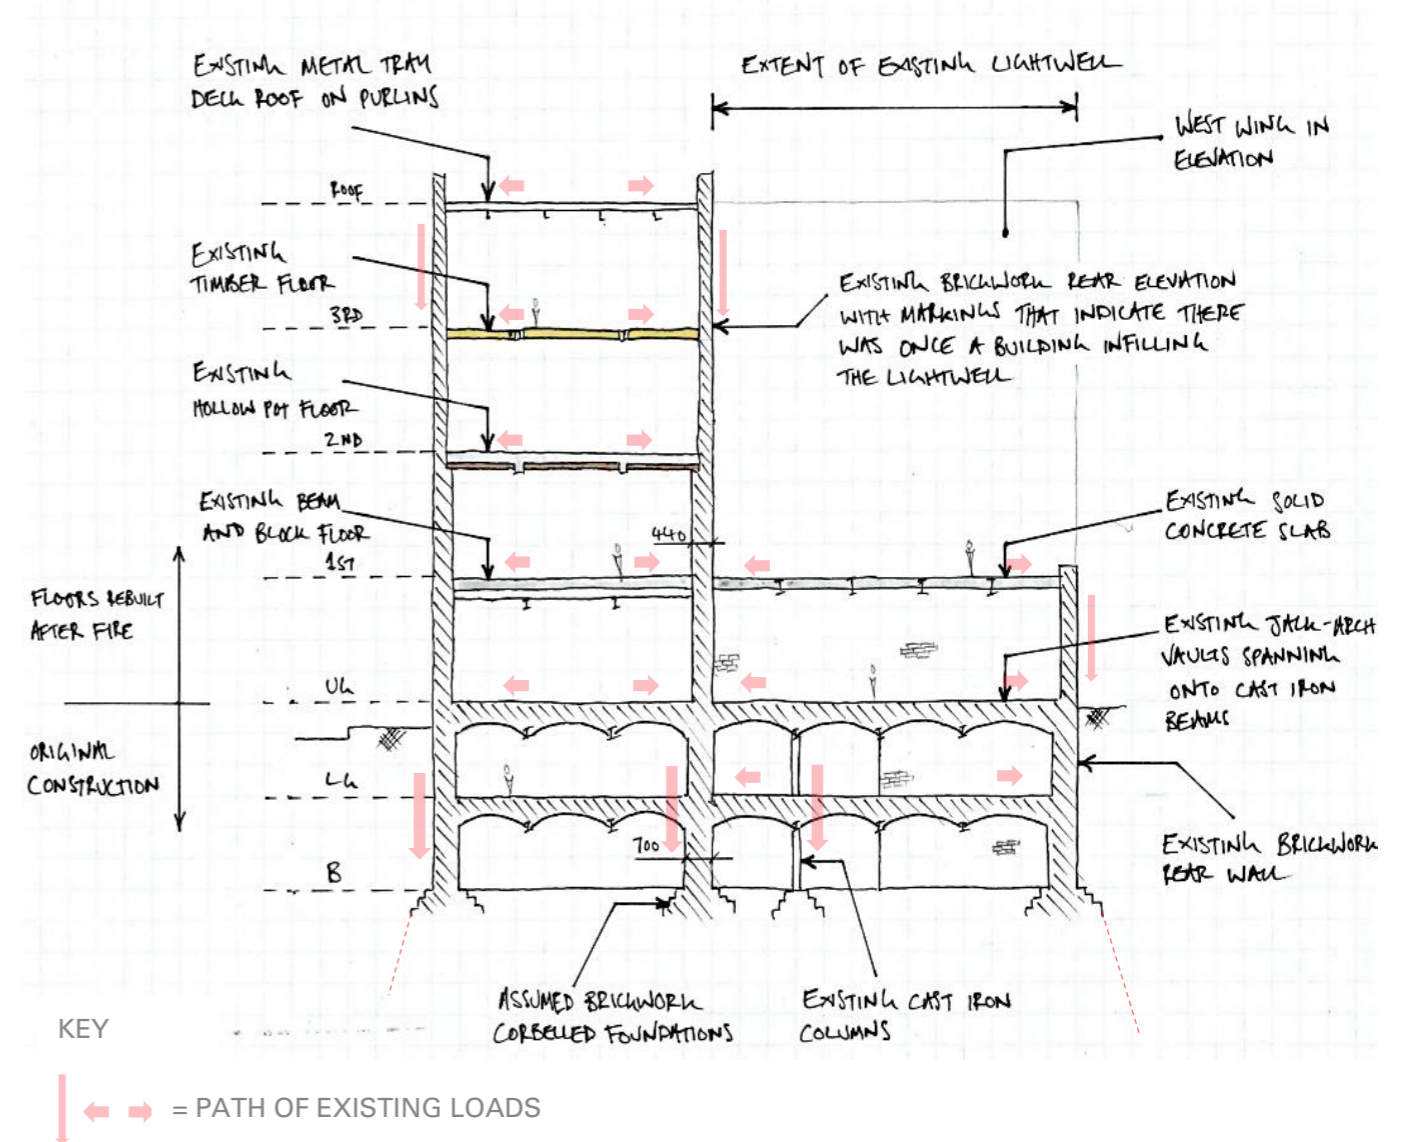 EXISTING METAL TRAY
DECK ROOF ON PURLINS
EXTENT OF EXISTING LIGHTWELL
WEST WING IN
ELEVATION
ROOF
EXISTING
TIMBER FLOOR
3RD
EXISTING BRICKWORK REAR ELEVATION
WITH MARKINGS THAT INDICATE THERE
WAS ONCE A BUILDING INFILLING
THE LIGHTWELL
EXISTING
HOLLOW POT FLOOR
2ND
EXISTING BEAM
AND BLOCK FLOOR
1ST
440
EXISTING SOLID
CONCRETE SLAB
FLOORS REBUILT
AFTER FIRE
EXISTING JACK-ARCH
VAULTS SPANNING
ONTO CAST IRON
BEAMS
UG
ORIGINAL
CONSTRUCTION
LG
B
700
EXISTING BRICKWORK
REAR WALL
ASSUMED BRICKWORK
CORBELLED FOUNDATIONS
EXISTING CAST IRON
COLUMNS
KEY
= PATH OF EXISTING LOADS